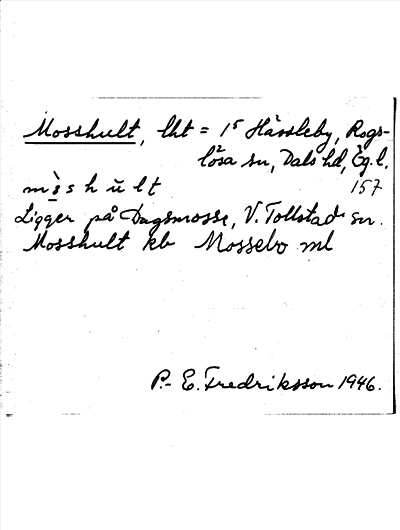 Mosshult, lht = 1⁵ Hässleby, Rogs-
lösa sn, Dals hd, Ög. l.
157
mòshùlt
Ligger på Dagsmosse, V. Tollstads sn.
Mosshult kb Mossebo ml
P.-E. Fredriksson 1946.